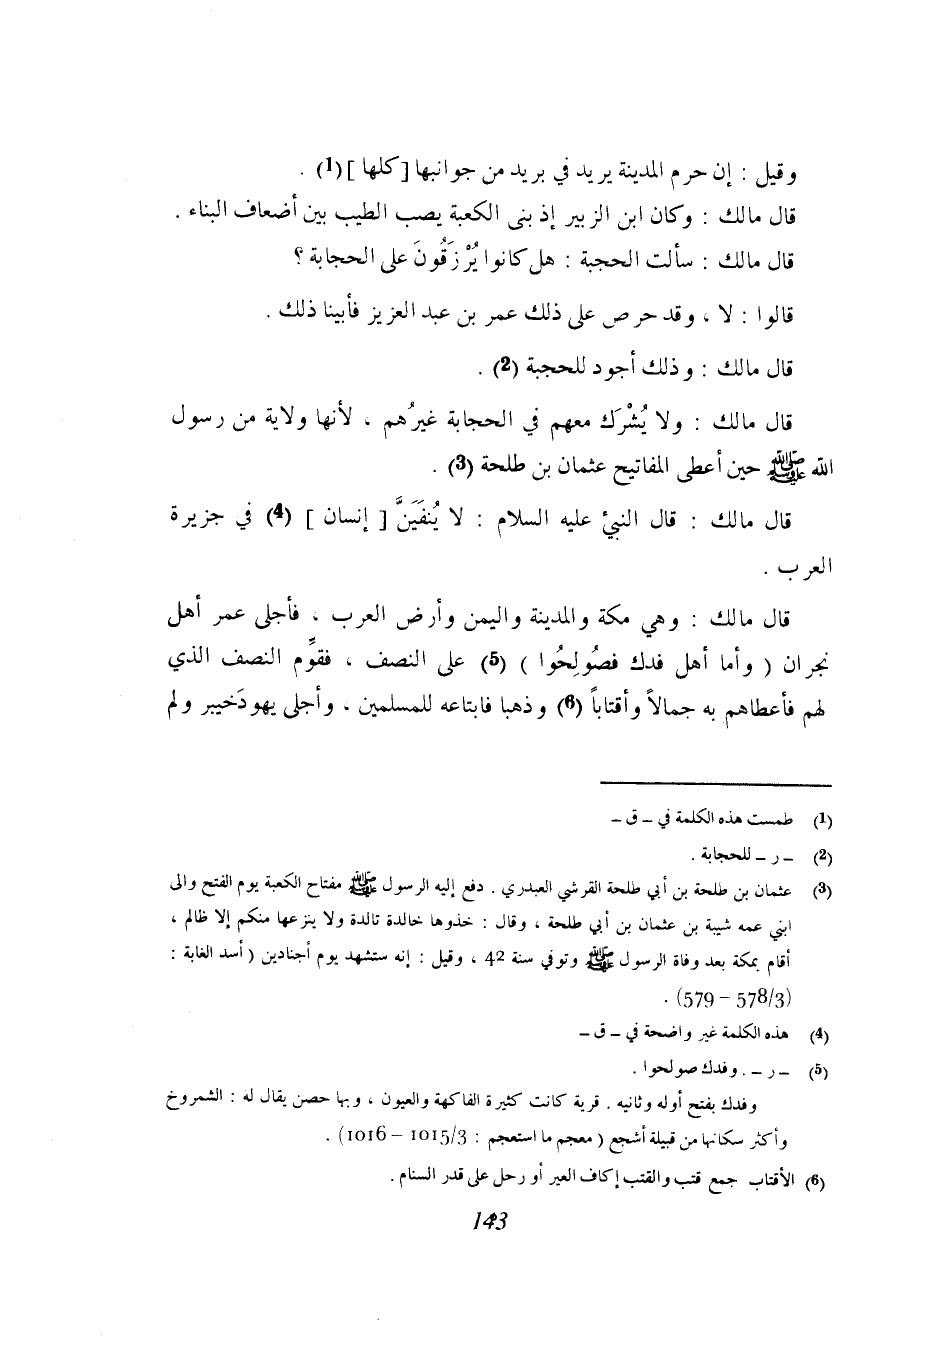 وقيل : إن حرم المدينة يريد في بريد من جوانبها [كلها ](1) .
قال مالك : وكان ابن الزبير إذ بنى الكعبة يصب الطيب بين أضعاف البناء .
قال مالك : سألت الحجبة : هل كانوا يُرْزَقُونَ على الحجابة ؟
قالوا : لا ، وقد حرص على ذلك عمر بن عبد العزيز فأبينا ذلك .
قال مالك : وذلك أجود للحجبة (2) .
قال مالك : ولا يُشْرَك معهم في الحجابة غيرُهم ، لأنها ولاية من رسول
الله ﷺ حين أعطى المفاتيح عثمان بن طلحة (3) .
قال مالك : قال النبيُّ عليه السلام : لا يُنفَيَنَّ [ إنسان ] (4) في جزيرة
العرب .
قال مالك : وهي مكة والمدينة واليمن وأرض العرب ، فأجلى عمر أهل
نجران ( وأما أهل فدك فصُولِحُوا ) (5) على النصف ، فقوِّم النصف الذي
لهم فأعطاهم به جمالاً وأقتاباً (6) وذهبا فابتاعه للمسلمين ، وأجلى يهودَخيبر ولم
(1) طمست هذه الكلمة في ــ ق ــ
(2) ــ ر ــ للحجابة .
(3) عثمان بن طلحة بن أبي طلحة القرشي العبدري . دفع إليه الرسول ﷺ مفتاح الكعبة يوم الفتح والى
ابني عمه شيبة بن عثمان بن أبي طلحة ، وقال : خذوها خالدة تالدة ولا ينزعها منكم إلا ظالم ،
أقام بمكة بعد وفاة الرسول ﷺ وتوفي سنة 42 ، وقيل : إنه ستشهد يوم أجنادين ( أسد الغابة :
578/3 – 579) .
(4) هذه الكلمة غير واضحة في ــ ق ــ
(5) ــ ر ــ . وفدك صولحوا .
وفدك بفتح أوله وثانيه . قرية كانت كثيرة الفاكهة والعيون ، وبها حصن يقال له : الشمروخ
وأكثر سكانها من قبيلة أشجع ( معجم ما استعجم : 1015/3 – 1016) .
(6) الأقتاب جمع قتب والقتب إكاف العير أو رحل على قدر السنام .
143